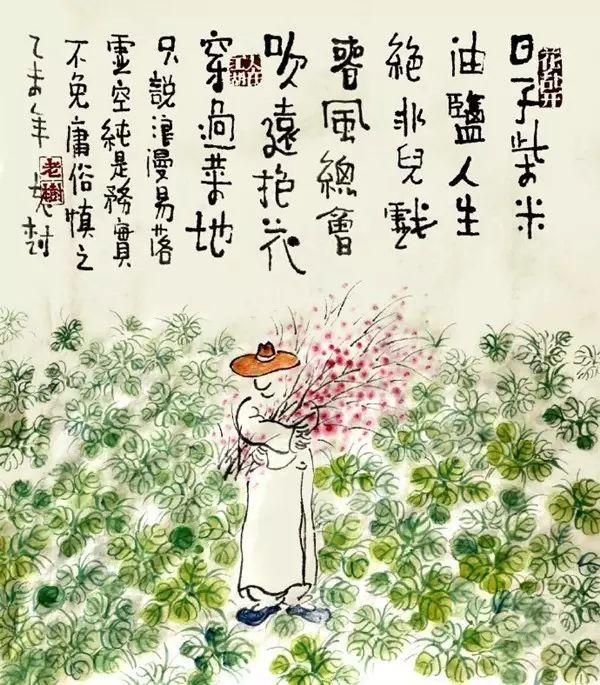 花乱开
日子柴米
油鹽人生
絕非兒戲
春風總會
人在江湖
吹遠抱花
穿過菜地
只說浪漫易落
虛空純是務實
不免庸俗慎之
乙未年老树
老樹